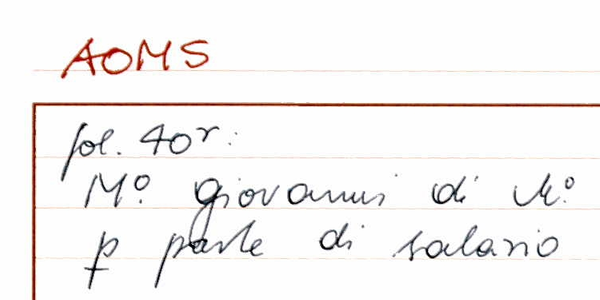 AOMS
fol. 40r:
Mº. giovanni di Mº.
p parte di salario